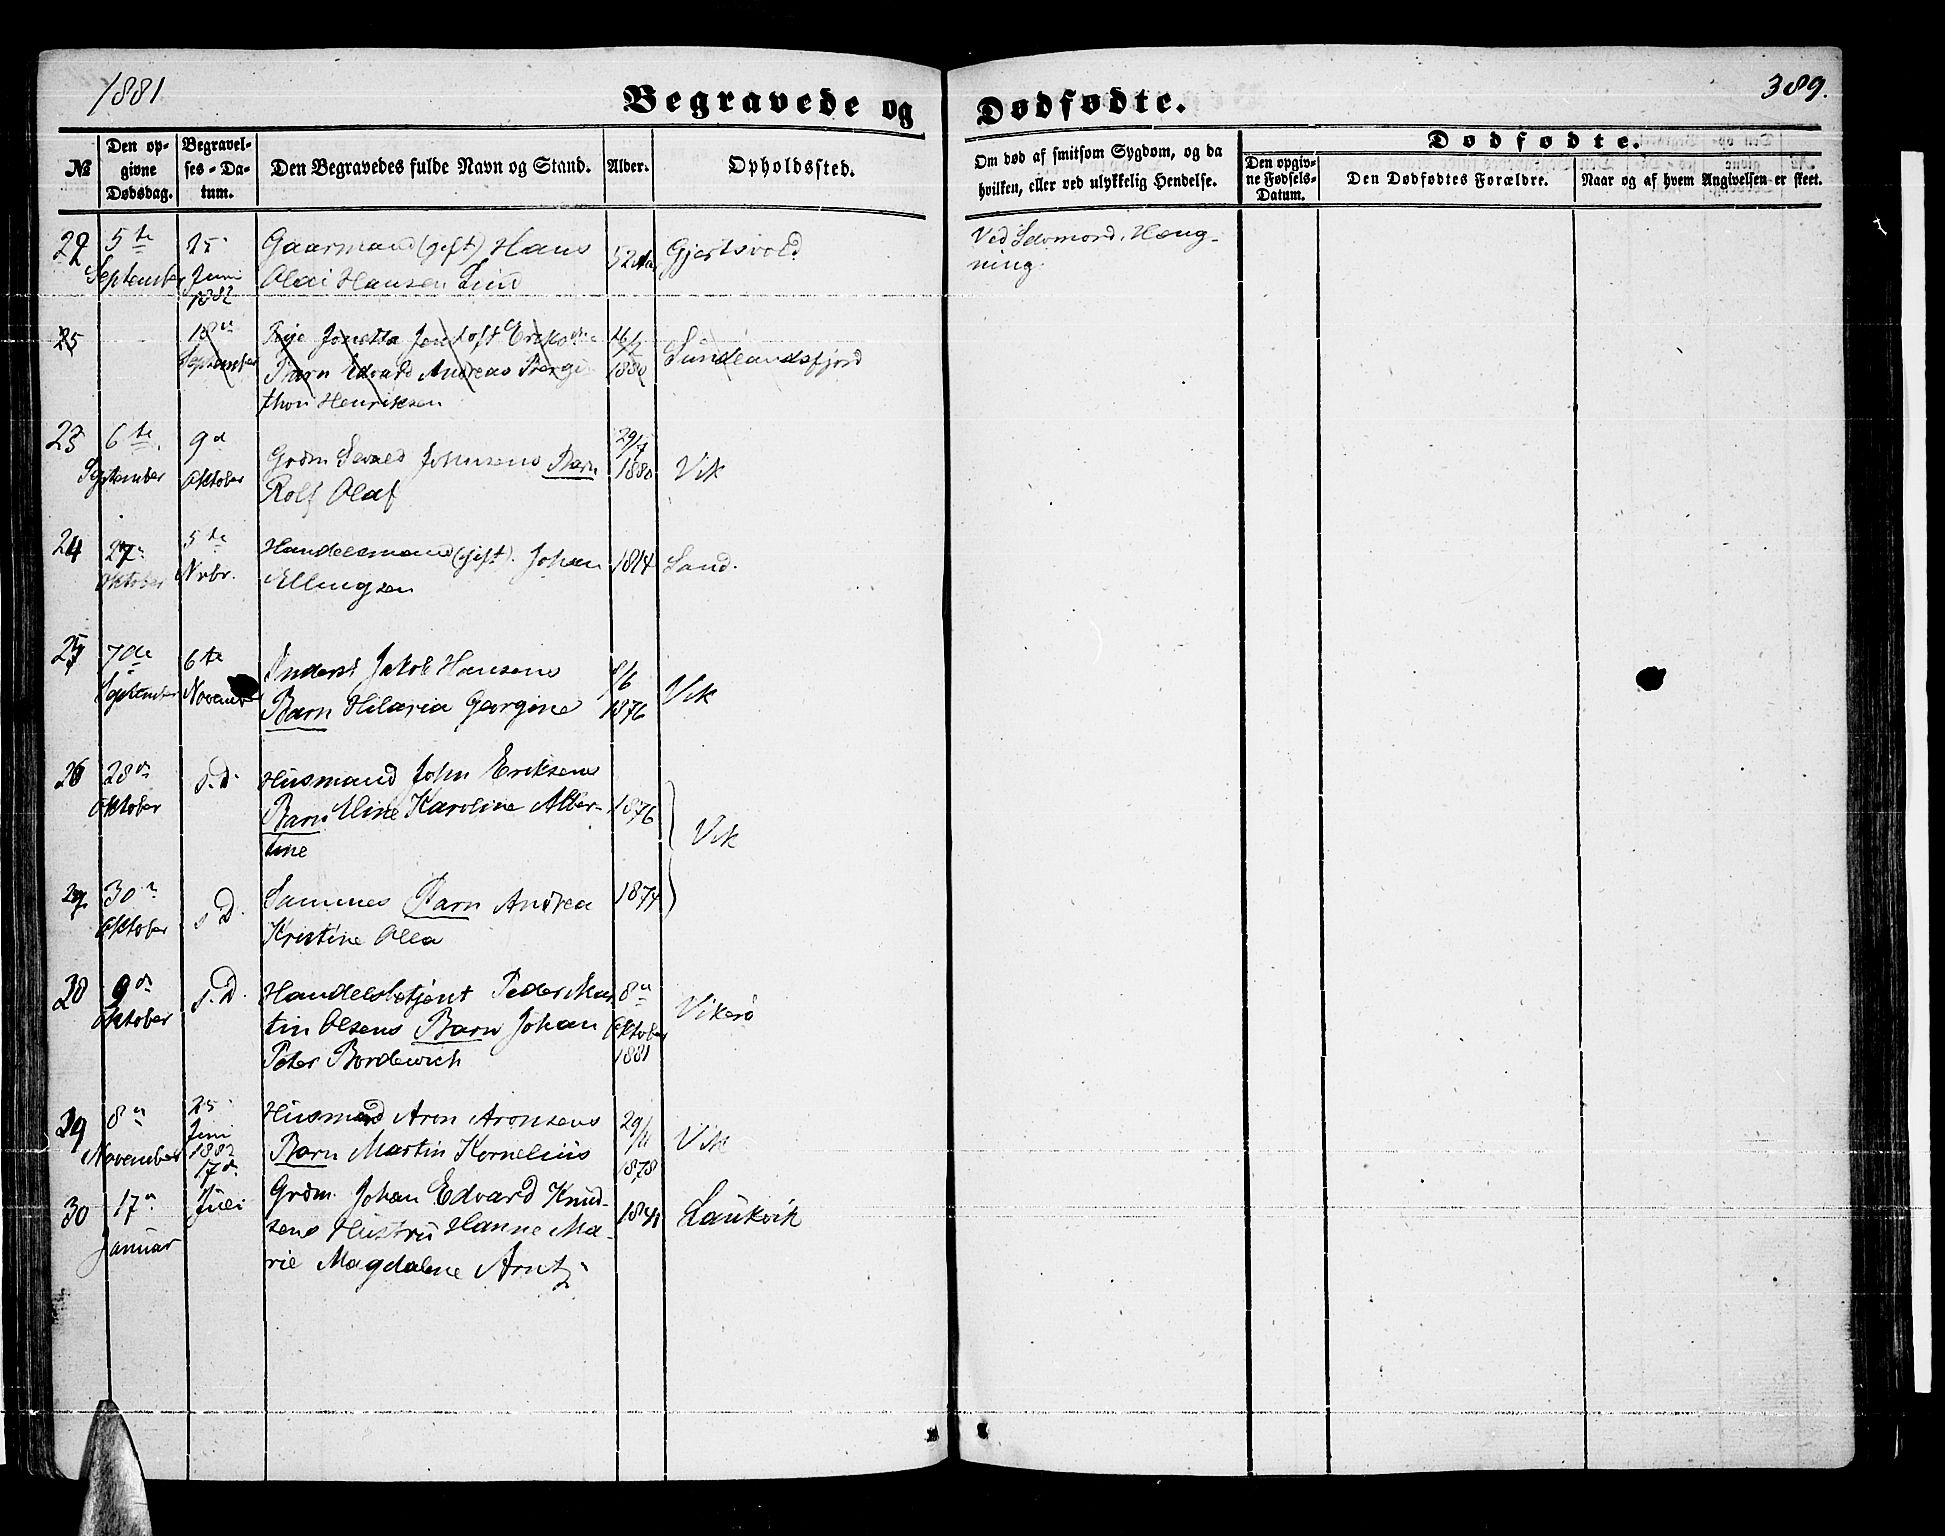 1881
389.
Begravede og Dødfødte.
№
Den opgivne Dødsdag.
Begravelses-Datum.
Den Begravedes fulde Navn og Stand.
Alder.
Opholdssted.
Om død af smitsom Sygdom, og da
hvilken, eller ved ulykkelig Hendelse.
Dødfødte.
Den opgivne Fødsels-Datum.
Den Dødfødtes Forældre.
Naar og af hvem Angivelsen er skeet.
22 5te 25 Gaarmand (gift) Hans Gjertsvold Ved Selvmord, Hæng-
September Juni Olai Hansen Lind 52 ning.
1882
25 18de Jentoft 26/2
September Barn Edvard Andreas 1880 Sundlandsfjord
thon Henriksen
23 6te 9d Grdm Sevald Johnsens Barn 29/7 Vik
September Oktober Rolf Olaf 1880
24 27 5te Handelsmand (gift). Johan 1814 Sand.
Oktober Novbr. Ellingsen
25 7de 6te Inderst Jakob Hansens 8/6 Vik
September November Barn Hilaria Gorgine 1876
26 28de s.D. Husmand John Eriksens
Oktober Barn Aline Karoline Alber- 1876 Vik
tine
27 30 s.D. Sammes Barn Andrea 1874
Oktober Kristine
28 9de s.D. Handelsbetjent Peder Mar 8de Vikerø
Oktober tin Olsens Barn Johan Oktober
Peter Bordewich 1881
29 8de 25 Husmand Aron Aronsens 29/11 Vik
November Juni 1882 Barn Martin Kornelius 1878
30 17de 17de Grdm. Johan Edvard Knud- 1841 Laukvik
Januar Juli sens Hustru Hanne Ma-
rie Magdalene Arntz